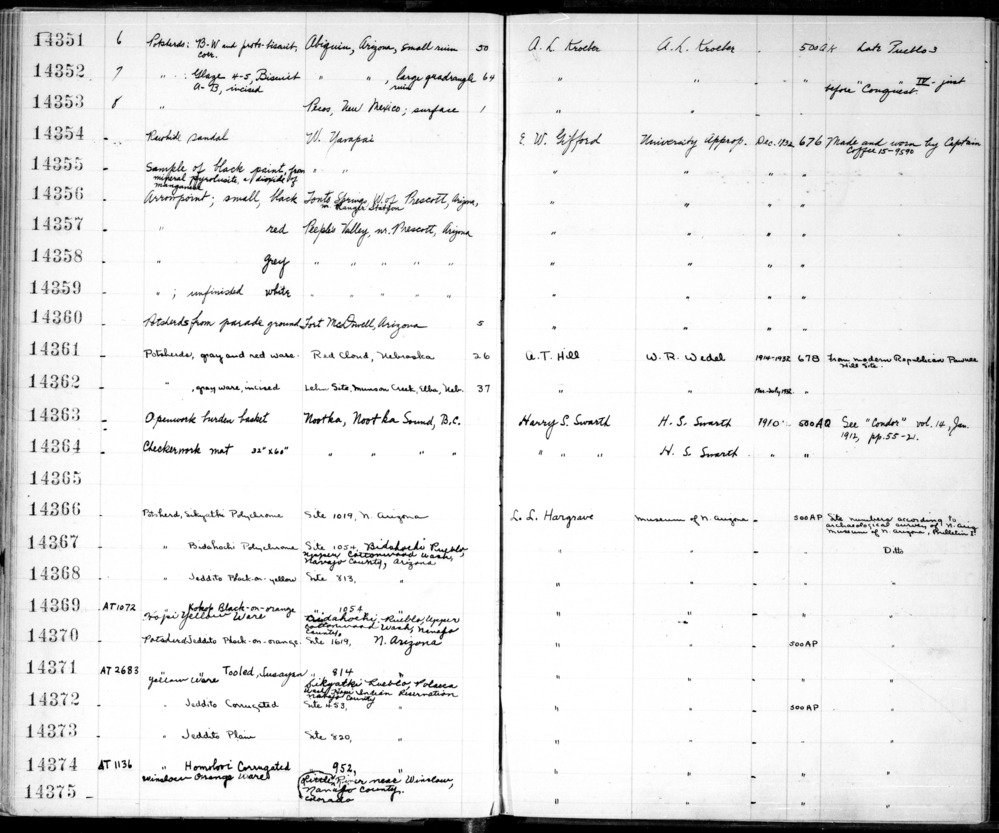 14351 6 Potsherds: B-W and proto-biscuit, corr. Abiquiu, Arizona, small ruin 30 A. L. Kroeber A. L. Kroeber - 500AH Late Pueblo 3
14352 7 " : Glaze 4-5, Biscuit A-B, incised " " , large quadrangle ruin 64 " " - " " IV - just before "Conquest"
14353 8 " Pecos, New Mexico; surface 1 " " -
14354 - Rawhide sandal W. Yavapai E. W. Gifford University Approp. Dec. 1932 676 Made and worn by Captain Coffee 15-9590
14355 - Sample of black paint, from mineral pyrolusite, a dioxide of manganese " " " " " "
14356 - Arrowpoint; small, black Tonto Springs, W. of Prescott, Arizona, nr Ranger Station " " " "
14357 - " red Peeple's Valley, nr. Prescott, Arizona " " " "
14358 - " Grey " " " " " " " " "
14359 - " ; unfinished white " " " " " " " " "
14360 - Potsherds from parade ground Fort McDowell, Arizona 5 " " " "
14361 - Potsherds, gray and red ware. Red Cloud, Nebraska 26 A. T. Hill W. R. Wedel 1914-1932 678 From modern Republican Pawnee Hill Site.
14362 " , gray ware, incised Site, Munson Creek, Elba, Neb. 37 " " "
14363 - Openwork burden basket Nootka, Nootka Sound, B.C. Harry S. Swarth H. S. Swarth 1910 500AQ See "Condor" vol. 14, Jan. 1912, pp.
14364 - Checkermork mat 32" x 60" " " " " " " " " H. S. Swarth " "
14365
14366 Potsherd, Sikyatki Polychrome Site 1019, N. Arizona L. L. Hargrave Museum of N. Arizona - 500AP Site numbers according to archaeological survey of N. Ariz Museum of N. Arizona, Bulletin
14367 " Bidahochi Polychrome Site 1054, Bidahochi Pueblo, upper Cottonwood Wash, Navajo County, Arizona " " - Ditto
14368 " Jeddito Black-on-yellow Site 813, " " " - "
14369 AT 1072 " Kokop Black-on-orange " 1054 Bidahochi Pueblo, upper Cottonwood Wash, Navajo County, " " - "
14370 Potsherd Jeddito Black-on-orange Site 1019, N. Arizona " " - 500AP "
14371 AT 2683 " " Tooled, Yellow Ware " 814 " Sikyatki Pueblo, Hopi Indian Reservation Navajo County " " - "
14372 " Jeddito Corrugated Site 453, " " " - 500AP "
14373 " Jeddito Plain Site 820, " " " - "
14374 AT 1136 " Homolovi Corrugated Winslow Orange Ware " 952, " (Little River near Winslow, Navajo County. Colorado " " - "
14375 - " " - "